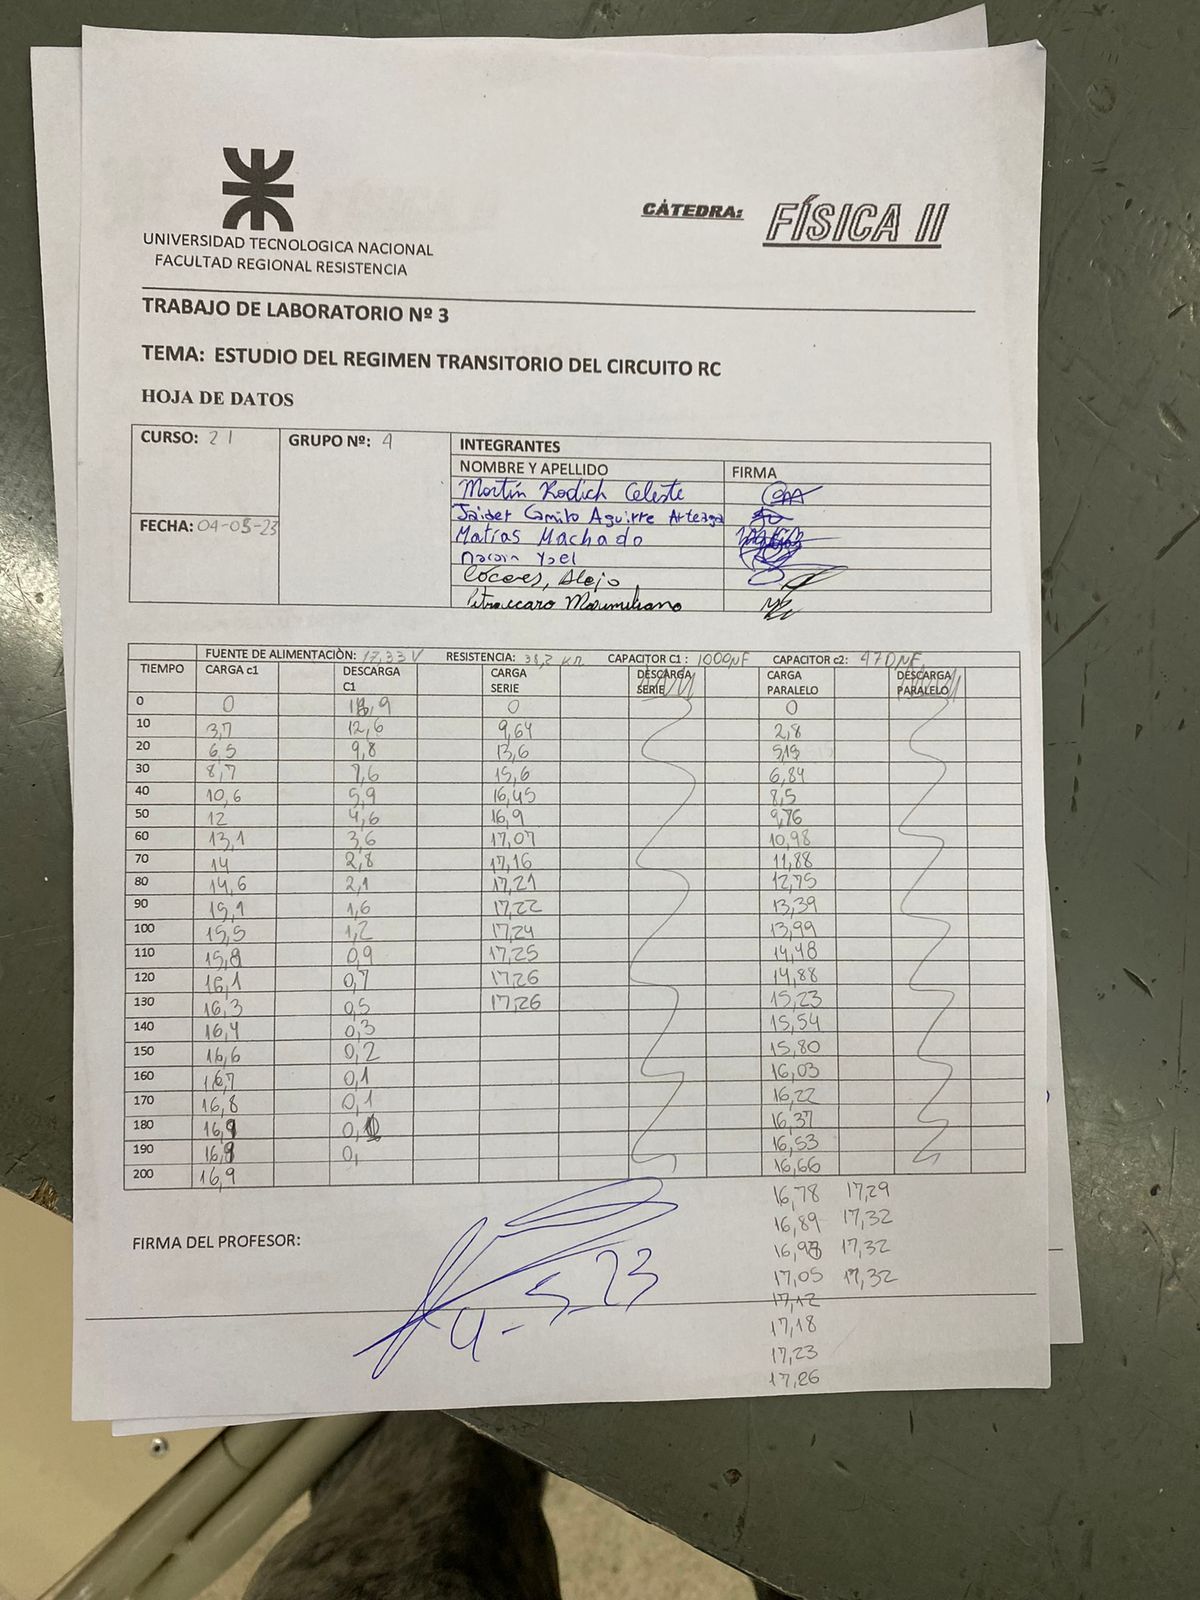 CÁTEDRA: FÍSICA II
UNIVERSIDAD TECNOLOGICA NACIONAL
FACULTAD REGIONAL RESISTENCIA
TRABAJO DE LABORATORIO Nº 3
TEMA: ESTUDIO DEL REGIMEN TRANSITORIO DEL CIRCUITO RC
HOJA DE DATOS
CURSO: 21 GRUPO Nº: 4 INTEGRANTES
NOMBRE Y APELLIDO FIRMA
Martín Rodich Celeste
Jaider Camilo Aguirre Arteaga
FECHA: 04-05-23
Matías Machado
Yael
Cóceres, Alejo
Petraccaro Maximiliano
FUENTE DE ALIMENTACIÒN: 17,33 V RESISTENCIA: 38,2 KΩ CAPACITOR C1: 1000µF CAPACITOR c2: 470µF
TIEMPO CARGA c1 DESCARGA C1 CARGA SERIE DESCARGA SERIE CARGA PARALELO DESCARGA PARALELO
0 0 16,9 0 0
10 3,7 12,6 9,64 2,8
20 6,5 9,8 13,6 5,15
30 8,7 7,6 15,6 6,84
40 10,6 5,9 16,45 8,5
50 12 4,6 16,9 9,76
60 13,1 3,6 17,07 10,98
70 14 2,8 17,16 11,88
80 14,6 2,1 17,21 12,75
90 15,1 1,6 17,22 13,39
100 15,5 1,2 17,24 13,99
110 15,8 0,9 17,25 14,48
120 16,1 0,7 17,26 14,88
130 16,3 0,5 17,26 15,23
140 16,4 0,3 15,54
150 16,6 0,2 15,80
160 16,7 0,1 16,03
170 16,8 0,1 16,22
180 16,9 16,37
190 16,9 0, 16,53
200 16,9 16,66
16,78 17,29
16,89 17,32
16,98 17,32
17,05 17,32
17,12
17,18
17,23
17,26
FIRMA DEL PROFESOR:
4-5-23